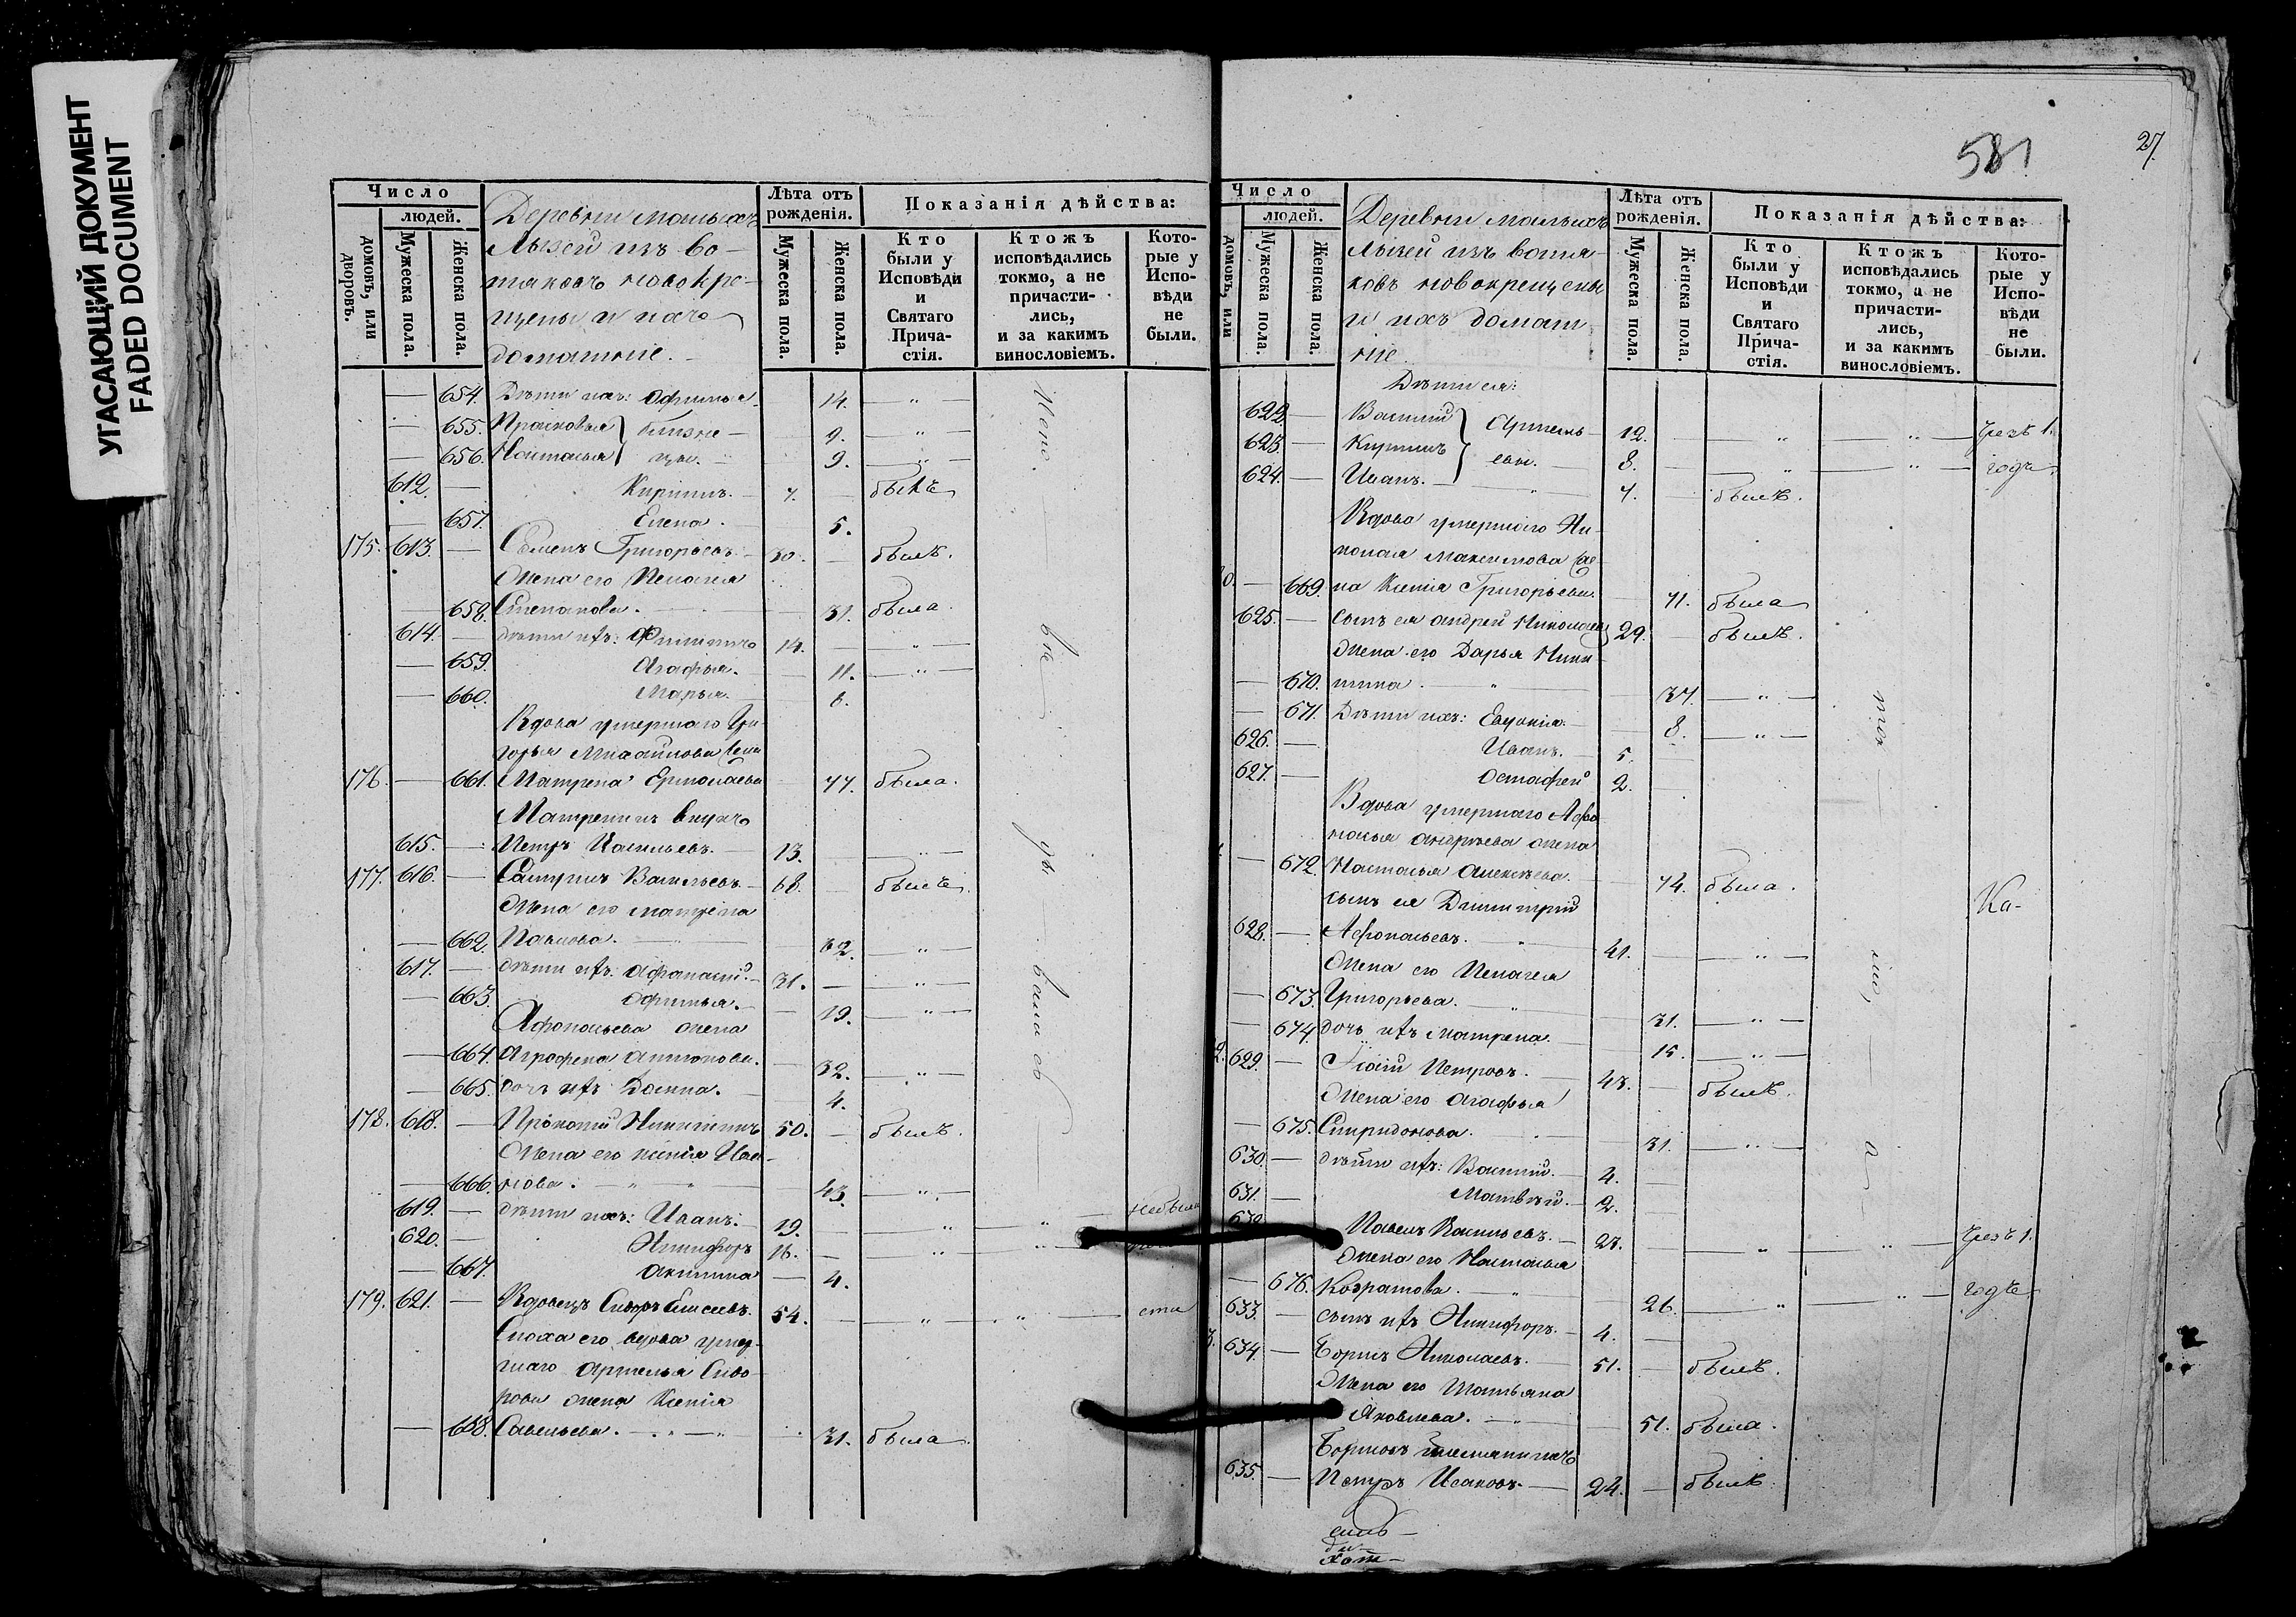 УГАСАЮЩИЙ ДОКУМЕНТ
FADED DOCUMENT
Число
людей.
домовъ, или дворовъ.
Мужеска пола.
Женска пола.
Деревни малыхъ
Лызей изъ во-
тяковъ новокре-
щены и ихъ
домашніе.
Лѣта отъ рожденія.
Мужеска пола.
Женска пола.
Показанія дѣйства:
Кто были у Исповѣди и Святаго Прича-стія.
Ктожъ исповѣдались токмо, а не причасти-лись, и за какимъ винословіемъ.
Кото-рые у Испо-вѣди не были.
— 654. Дѣти ихъ: Офимья. 14. — „ —
— 655. Прасковья } близне- 9. — „ —
— 656. Настасья } цы. 9. — „ —
612. — Кирилъ. — 7. — былъ
— 657. Елена. 5.
175. 613. — Семенъ Григорьевъ. — 30. — былъ.
Жена его Пелагея
— 658. Степанова. — 31. была
614. — дѣти ихъ: Филипъ 14. — „ —
— 659. Агафья. — 11. — „ —
— 660. Марья. 8.
Вдова умершаго Гри-
горья Михайлова жена
176. — 661. Матрена Ермолаева 77. была.
Матренинъ внукъ
615. — Петръ Васильевъ. 13. — „ —
177. 616. — Василь­евъ. — 68. былъ
Жена его Матрена
— 662. Павлова. — 62. — „ —
617. — дѣти ихъ: Афанасій. — 31. — „ —
— 663. Офимья. — 19. — „ —
Афонасьева жена
— 664. Аграфена Антонова. 32. — „ —
— 665. дочь ихъ Домна. — 4.
178. 618. — Прокопій Никитинъ 50. — былъ.
Жена его Ксенія Ива-
— 666. нова. — „ — 43. — „ —
619. — дѣти ихъ: Иванъ. — 19. — „ — „ — небыли
620. — Никифоръ 16. — „ — „ —
— 667. Акилина — 4.
179. 621. — Вдовецъ Сидоръ Елисеевъ. 54. — „ — „ —
Сноха его вдова умер-
шаго Артемья Сидо-
рова жена Ксенія
— 668. Савельева. — „ — 31. была
Испо-
вѣ-
ды-
вались
581
27.
Число
людей.
домовъ, или
Мужеска пола.
Женска пола.
Деревни малыхъ
Лызей изъ вотя-
ковъ новокрещены
и ихъ домаш-
ніе.
Лѣта отъ рожденія.
Мужеска пола.
Женска пола.
Показанія дѣйства:
Кто были у Исповѣди и Святаго Прича-стія.
Ктожъ исповѣдались токмо, а не причасти-лись, и за какимъ винословіемъ.
Кото-рые у Испо-вѣди не были.
Дѣти ея:
622. — Василій } Артемь- 12. — „ — „ — чрезъ 1.
623. — Кирилъ } евы. 8. — „ — „ — годъ
624. — Иванъ. — „ — 7. — былъ.
Вдова умершаго Ни-
колая Максимова же-
— 669. на Ксенія Григорьева. 71. была
625. — сынъ ея Андрей Николаевъ 29. — былъ.
Жена его Дарья Ники-
— 670. тина. — „ — 37. — „ —
— 671. Дѣти ихъ: Евдокія. — 8. — „ —
626. — Иванъ. — 5. —
627. — Остафей 2. —
Вдова умершаго Афо-
насья Андреева жена
— 672. Настасья Алексѣева. 74. была.
сынъ ея Димитрій
628. — Афонасьевъ. — „ — 41. — „ —
Жена его Пелагея
— 673. Григорьева. — „ — 31. — „ —
— 674. дочь ихъ Матрена. 15. — „ —
629. — Петровъ. — 43. — былъ.
Жена его Агафья
— 675. Спиридонова. — 31. — „ —
630. — дѣти ихъ: Василій. — 4. —
631. — Матвѣй. — 2. —
632. Павелъ Васильевъ. — 27. — „ — „ — чрезъ 1.
Жена его Настасья
— 676. Кондратова. — „ — 26. — „ — „ — годъ
633. — сынъ ихъ Никифоръ. — 4. —
634. — Борисъ Николаевъ. — 51. — былъ.
Жена его Татьяна
Яковлева. — „ — 51. была.
Борисовъ племянникъ
635. — Петръ Исаковъ. — 24. — былъ
Ка-